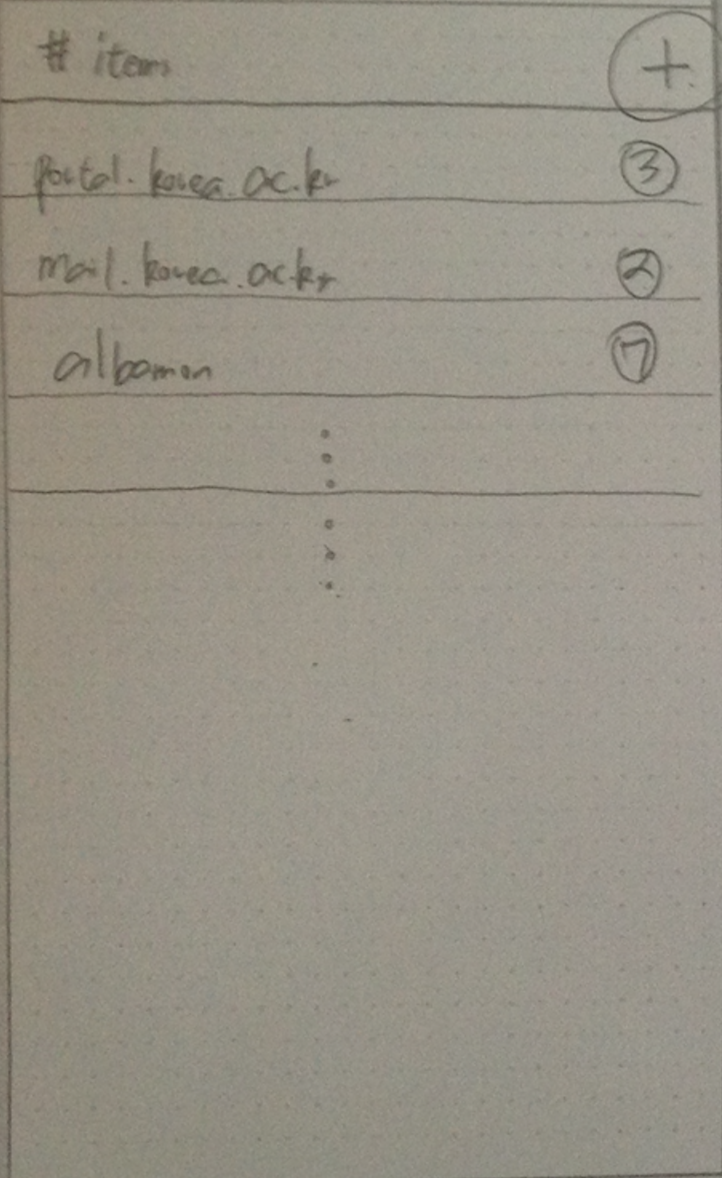 # item +
portal.korea.ac.kr 3
mail.korea.ac.kr 2
albamon 7